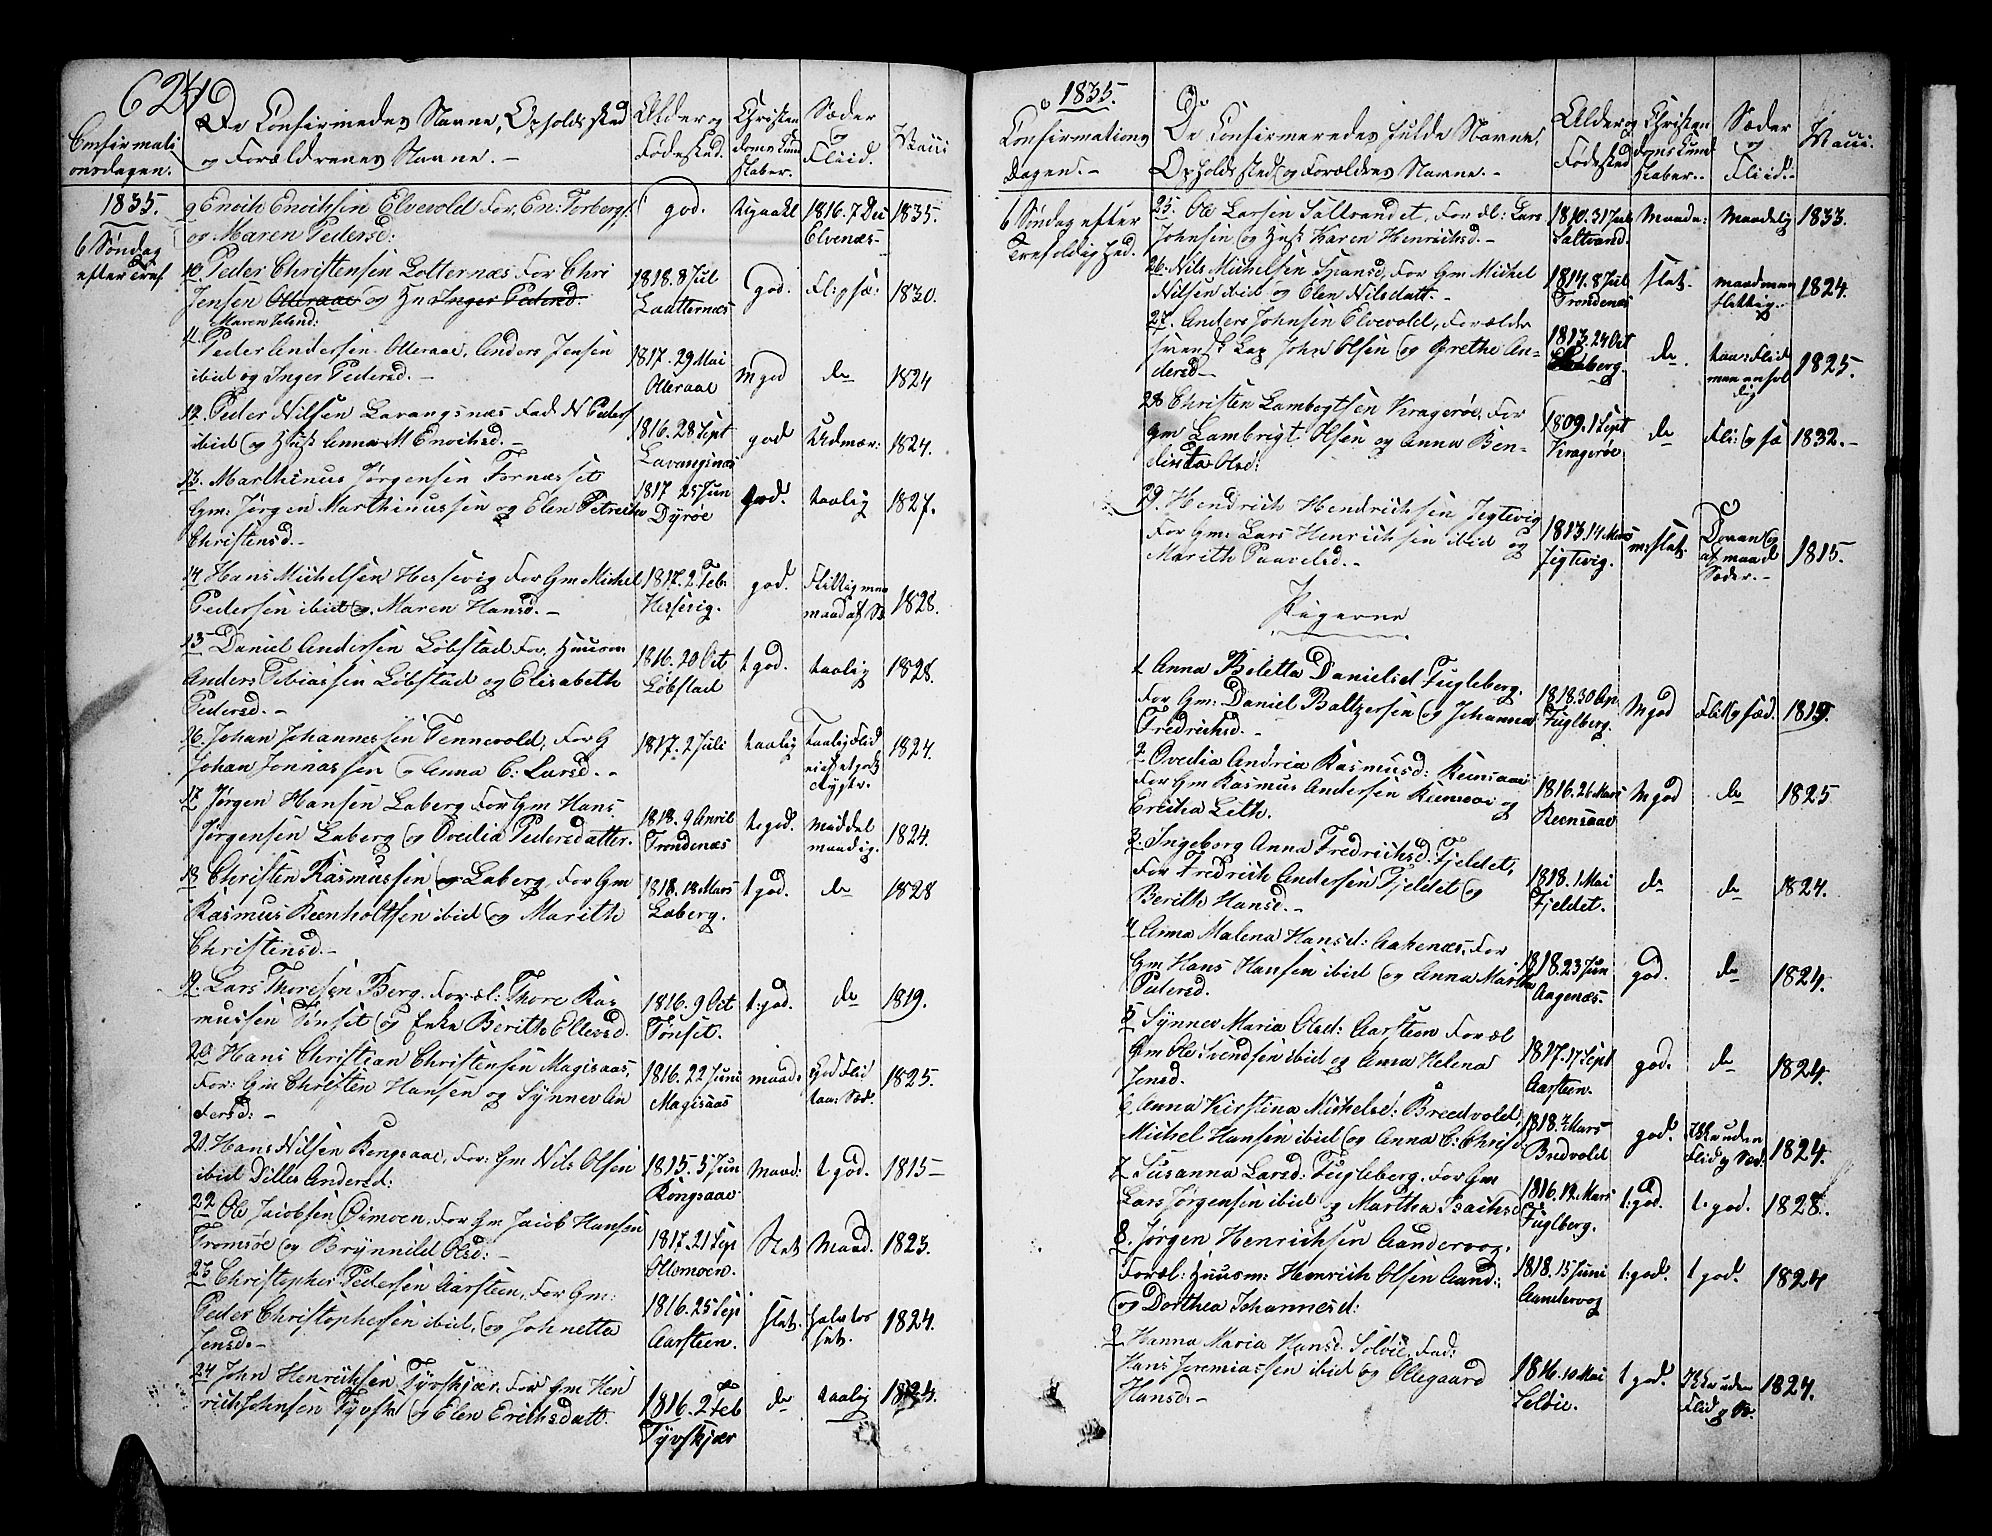 6249
Confirmati
onsdagen.
De Confirmedes Navne, Opholdssted
og Forældrenes Navne. -
Alder og
Fødested.
Christen
doms Kund
skaber.
Sæder
og
Fliid.
Vacci
1835.
6 Søndag
efter Tref
9 Enoch Enochsen Elvevold For, En: Torbergs.
og Maren Pedersd:
god.
1816. 7 Dec
Elvenæs
1835.
10. Peder Christensen Lotternæs For Chri
Jensen Olleraae og Hu Inger Pedersd.
Maren Jelsnd:
1818. 8 Jul
Laatternæs
god.
Fl og sæ:
1830.
11. Peder Andersen Olleraae, Anders Jensen
ibid og Inger Pedersd. -
1817. 29 Mai
Olleraae
M god
do
1824
12. Peder Nilsen Lavangsnæs Fad. N Peders
ibid og Hust Anna M. Enochsd. -
1816. 28 Sept
Lavangsnæs
god
Udmær:
1824.
13. Marthinus Jørgensen Fornæsset
Gm: Jørgen Marthinussen og Elen Petricha
Christensd. -
1817 25 Jun
Dyrøe
god.
taalig
1827.
14. Hans Michelsen Hessevig For Gm Michel
Pedersen ibid og Maren Hansd. -
1817. 2 Feb.
Hessevig.
god.
Flittig men
maad af Sæ
1828.
15 Daniel Andersen Løbstad For, Huusm
Anders Tobiassen Løbstad og Elisabeth
Pedersd. -
1816. 20 Oct
Løbstad
t god.
taalig
1828.
16. Johan Johannessen Tennevold, For G
Johan Jonnassen og Anna C. Larsd. -
1817. 2 Juli
taalig
Taalig Flid
1824.
17 Jørgen Hansen Laberg For Gm Hans
Jørgensen Laberg og Ovedia Pedersdatter.
1818. 9 April
Trondenæs
t. god.
middel
maadig.
1824.
18 Christen Rasmussen og Laberg, For Gm
Rasmus Reenholtsen ibid og Marith
Christensd. -
1818. 18 Mars
Laberg.
t god.
do
1828
19. Lars Thoresen Berg. Foræl: Thore Ras
mussen Tønset og Enke Berith Ellersd.
1816. 9 Oct
Tønset.
t: god.
do
1819.
20 Hans Christian Christensen Magisaas,
For: Gm Christen Hansen og Synnev An
fersd: -
1816. 22 Juni
Magisaas
maad:
God Flid
taa: Sæd.
1825.
21 Hans Nilsen Kongsaae, For: Gm Nils Olsen
ibid Dilles Andersd:
1815. 5 Jun
Kongsaae
Maad:
t god.
1815 -
22 Ole Jacobsen Oimoen. For Gm Jacob Hansen
Tromsøe og Brynnild Olsd: -
1817. 21 Sep
Ollemoen.
Slet
Maad.
1823.
23 Christopher Pedersen Aarsteen, For Gm:
Peder Christophersen ibid, og Johnetta
Jensd. -
1816. 25 Sep
Aarsteen.
slet.
1824.
24 John Henrichsen Tyvskjær. For Gm Hen
rich Johnsen Tyvsk og Elen Erichsdatt.
1816. 2 Feb
Tyvskjær
do
taalig
1824.
1835.
Confirmations
Dagen. -
De Confirmeredes fulde Navne,
Opholdssted og Forældres Navne. -
Alder og
Fødested
Christen
doms Kund
skaber. -
Sæder
og
Fliid. -
Vacci.
6 Søndag efter
Trefoldighed. -
25. Ole Larsen Saltvandet, For æl: Lars
Johnsen og Hust Karen Henrichsd. -
1810. 31 Jul
Saltvand.
Maade:
Maadelig
1833.
26. Nils Michelsen Hansd, For Gm Michel
Nilsen ibid og Elen Nilsdatt. -
1814. 8 Jul
Trondenæs
slet.
maad men
flittig. -
1824.
27. Anders Johnsen Elvevold, Forældre
svensk Lap John Olsen og Grethe An-
dersd -
1813. 24 Oct
do.
taa: Flid
1825.
28 Christen Lambregtsen Kragerøe, For
Gm Lambrigt Olsen og Anna Ben-
dicta Olsd:
1809. 1 Sept
Kragerøe
do
Fli: og sæ
1832. -
29. Hendrich Hendrichsen Jegtevig
For Gm: Lars Henrichsen ibid og
Marith Paavelsd. -
1813. 14 Mars
Jegtevig.
m: slet.
Doven og
af maad
Sæder. -
1815.
Pigerne
1 Anna Beletta Danielsd Fugleberg.
For Gm: Daniel Baltzersen og Johanna
Fredrichsd. -
1818. 30 Ap
Fuglberg.
M god
Flit og sæd.
1819.
2 Ovedia Andria Rasmusd: Reensaae
For Gm Rasmus Andersen Reensaae og
Ericha Leth.
1816. 26 Mars
Reensaae
M god
do
1825
3. Ingeborg Anna Fredrichsd. Fjeldet,
For Fredrich Andersen Fjeldet og
Berith Hansd. -
1818. 1 Mai
Fjeldet.
do
do
1824.
4 Anna Malena Hansd: Aakenæs, For
Gm Hans Hansen ibid og Anna Martha
Pedersd.
1818. 23 Jun
Aagenæs.
god.
do
1824.
5 Synnev Maria Olsd: Aarsteen Foræl
Gm Ole Svendsen ibid og Anna Helena
Jensd.
1817. 17 Sept
Aarsteen.
god.
do
1824.
6 Anna Kirstina Michelsd: Breedvold,
Michel Hansen ibid og Anna C: Chrisd
1818. 7 Mars
Bredvold
god.
Flid og Sæd:
1824.
7 Susanna Larsd: Fugleberg. For Gm
Lars Jørgensen ibid og Martha Isachsd
1816. 12 Mars
Fuglberg.
t: god.
t. god.
1828.
8. Jørgen Henrichsen Aandervog,
Foræl: Huusm: Henrich Olsen Aand:
og Dorthea Johannesd:
1818. 15 Juni
Aandervog
t: god.
t god.
1824
9 Hanna Maria Hansd. Seløie, Fad:
Hans Jeremiassen ibid og Ollegaard
Hansd: -
1816. 10 Mai
Seløie.
t god.
Flid og Sæ.
1824.